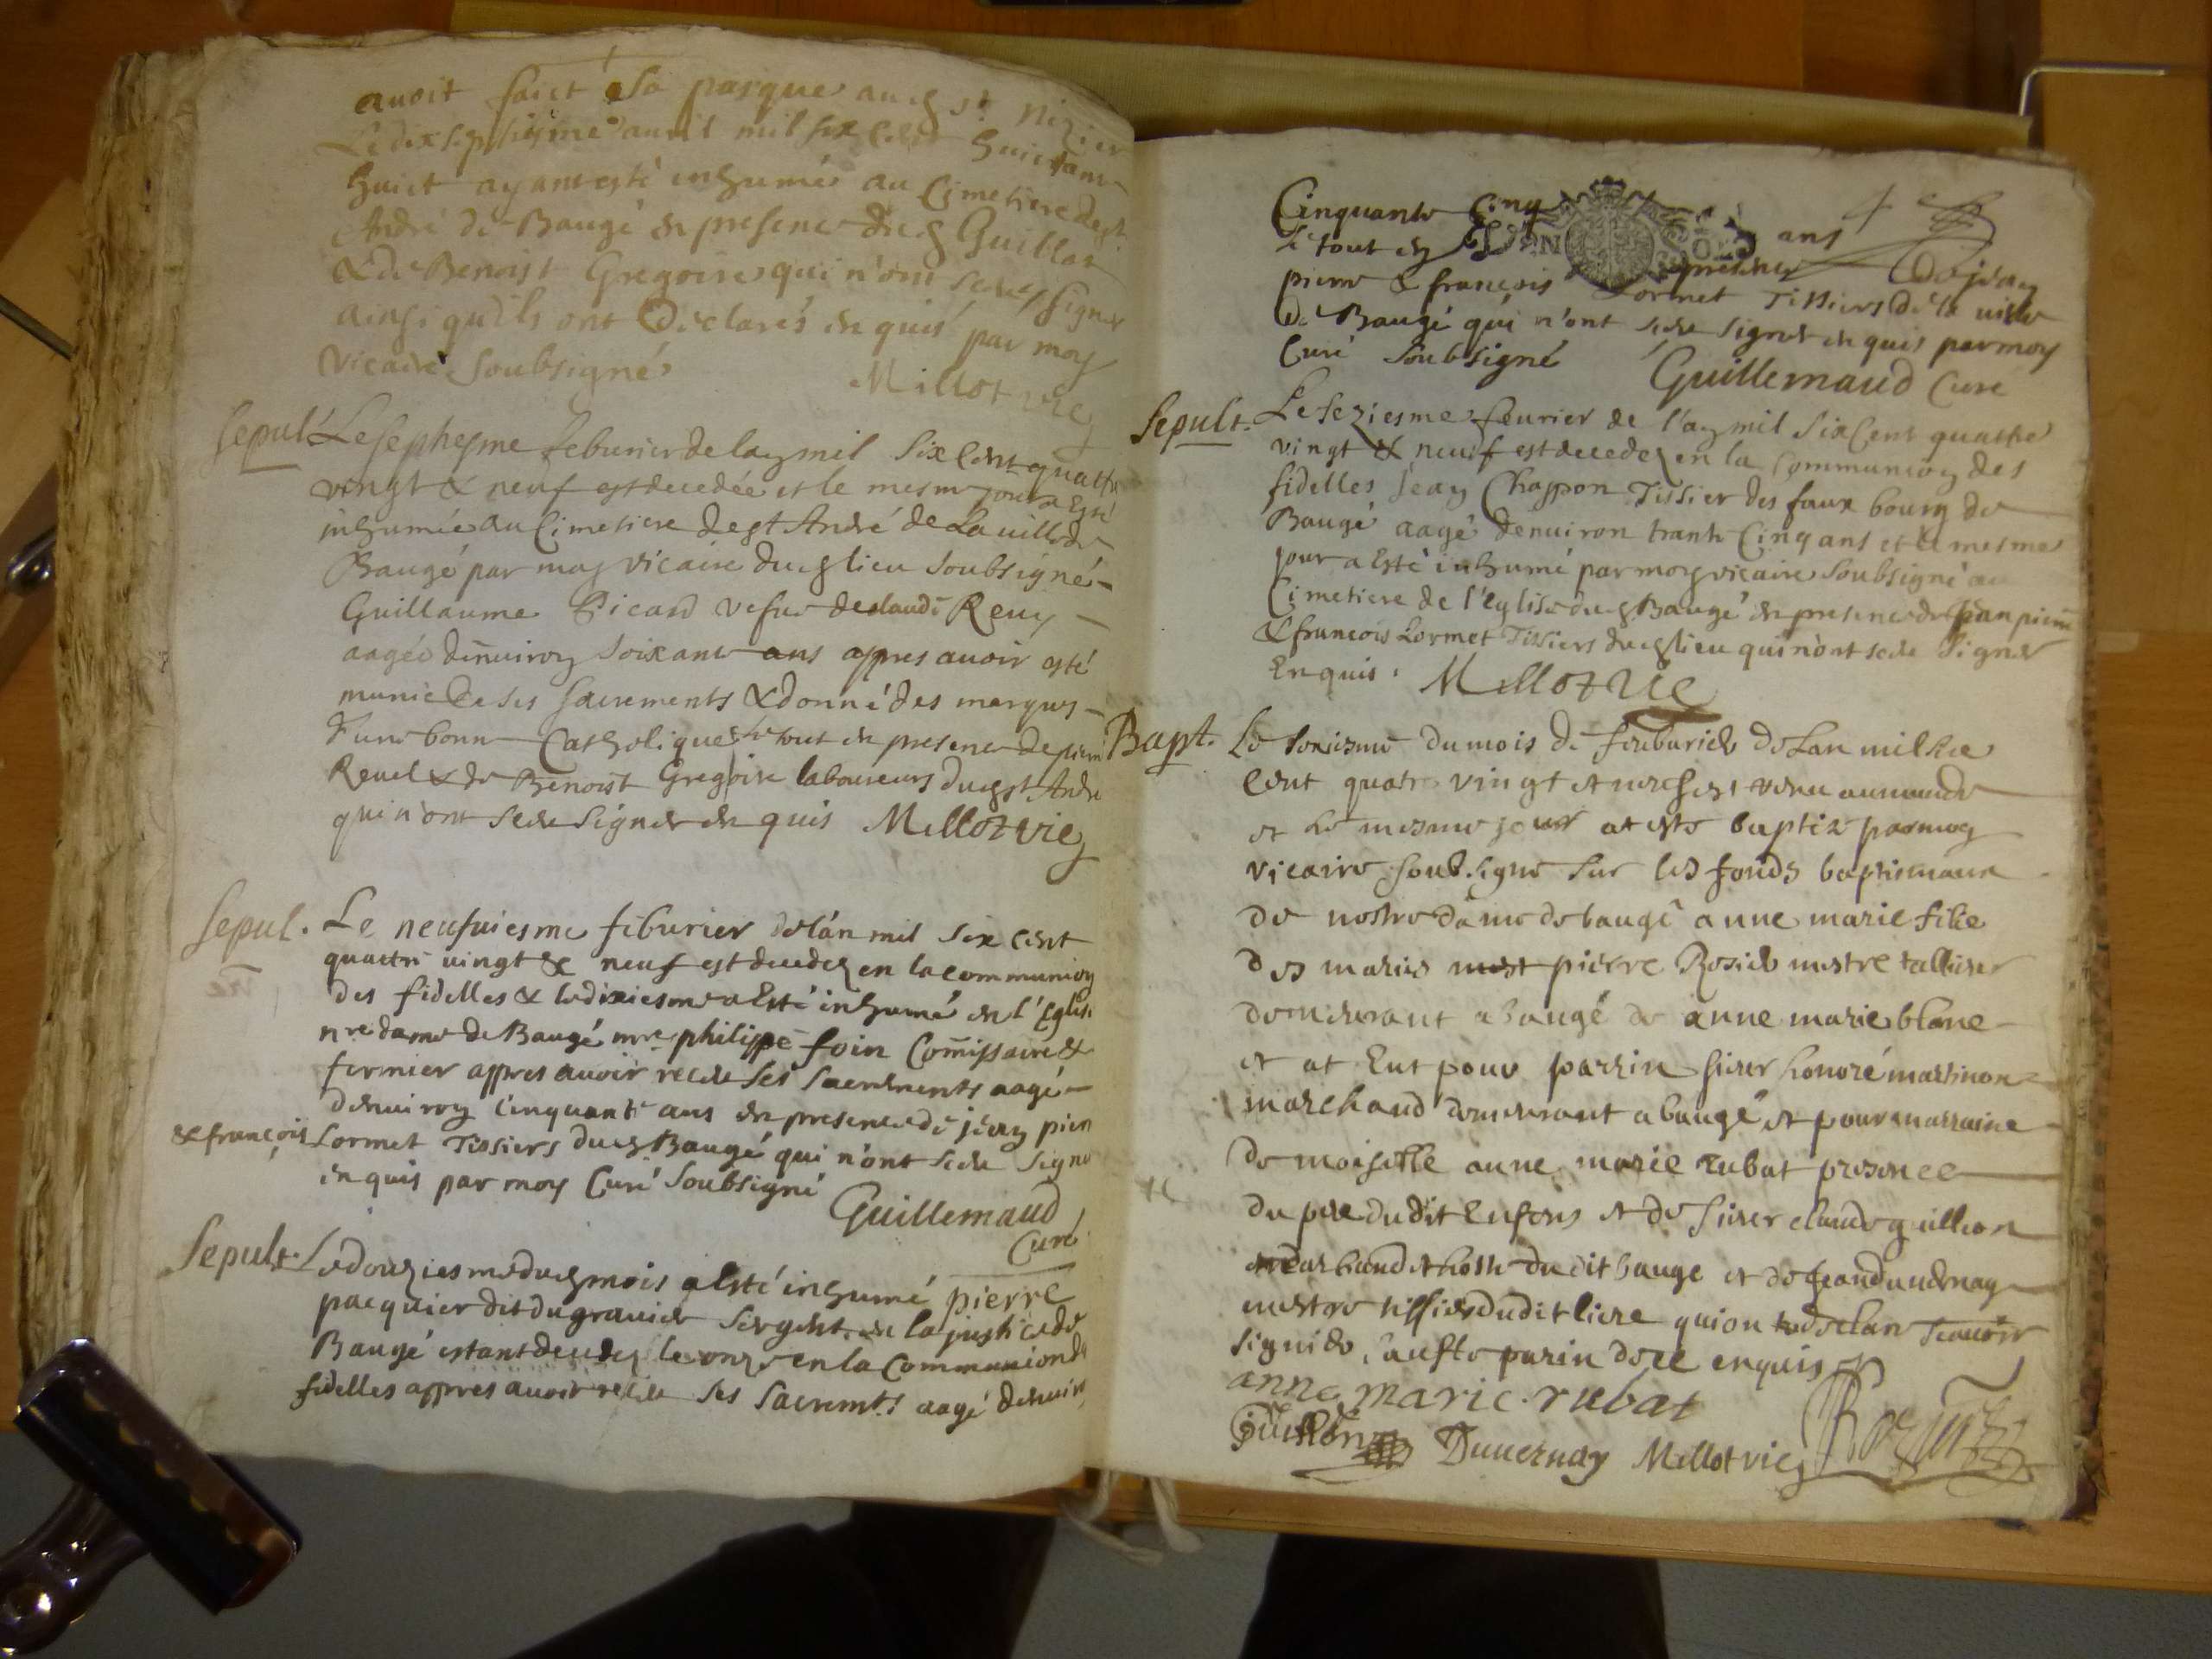 avoit faict sa pasque audt st Nizier
Le dix septiesme avril mil six cent huictante
huict ayant esté inhumée au Cimetiere de st
André de Baugé en presence dudt Guillot
& de Benoist Gregoire qui n'ont sceu signer
ainsi qu'ils ont declarés enquis par moy
vicaire soubsigné
Millot vic
Sepul. Le septiesme feburier de lan mil six cent quattre
vingt & neuf est decedée et le mesme jour a esté
inhumée au Cimetiere de st André de La ville de
Baugé par moy vicaire dudt lieu soubsigné
Guillaume Picard vefue de claude Reuy
aagée denviron soixante ans appres avoir esté
munie de ses sacrements & donné des marques
d'une bonne Catholique le tout en presence de pierre
Revel & de Benoist Gregoire laboureurs dudt st André
qui n'ont sceu signer enquis Millot vic
Sepul. Le neufuiesme feburier de lan mil six cent
quattre vingt & neuf est decedez en la communion
des fidelles & le dixiesme a esté inhumé en l'Eglise
nre dame de Baugé mre philippe foin Commissaire &
fermier appres avoir receu ses sacrements aagé
denviron cinquante ans en presence de jean pierre
& françois Lormet Tissiers dudt Baugé qui n'ont sceu signer
enquis par moy Curé soubsigné
Guillemaud
Curé
Sepult. Le douziesme dudt mois a esté inhumé pierre
pacquier dit du gravier sergent en la justice de
Baugé estant decedez le onze en la Communion des
fidelles appres avoir receu ses sacremts aagé denviron
Cinquante Cinq ans
le tout en presence de jean
pierre & françois Lormet Tissiers de la ville
de Baugé qui n'ont sceu signer enquis par moy
Curé soubsigné Guillemaud Curé
Sepult. Le seziesme feurier de l'an mil six Cent quattre
vingt & neuf est decedez en la communion des
fidelles Jean Chappon Tissier des faux bourg de
Baugé aagé denviron trante Cinq ans et le mesme
jour a esté inhumé par moy vicaire soubsigné au
Cimetiere de l'eglise dudt Baugé en presence de jean pierre
& francois Lormet Tissiers dudt lieu qui n'ont sceu signer
Enquis. Millot vic
Bapt. Le du mois de feuburier de Lan mil six
cent quatre vingt et neuf est venu au monde
et le mesme jour at esté baptizé par moy
vicaire soubsigne sur les fonds baptismaux
de nostre dame de baugé anne marie fille
des mariés pierre Rosier mestre tallieur
demeurant a baugé de anne marie blanc
et at Eut pour parrin sieur honoré martinon
marchand demeurant a baugé et pour marraine
demoiselle anne marie rubat presence
du pere dudit Enfens et de sieur claude guillon
marchand et hoste dudit bauge et de Jean duvernay
mestre tissier dudit lieu qui on declare scauoir
signér, le parin de ce enquis
anne marie rubat
Guillon Duvernay Millot vic